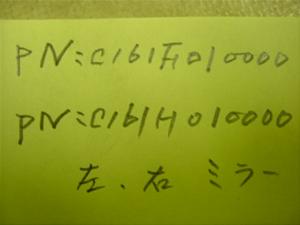 PN:C161F010000
PN:C161H010000
左、右 ミラー